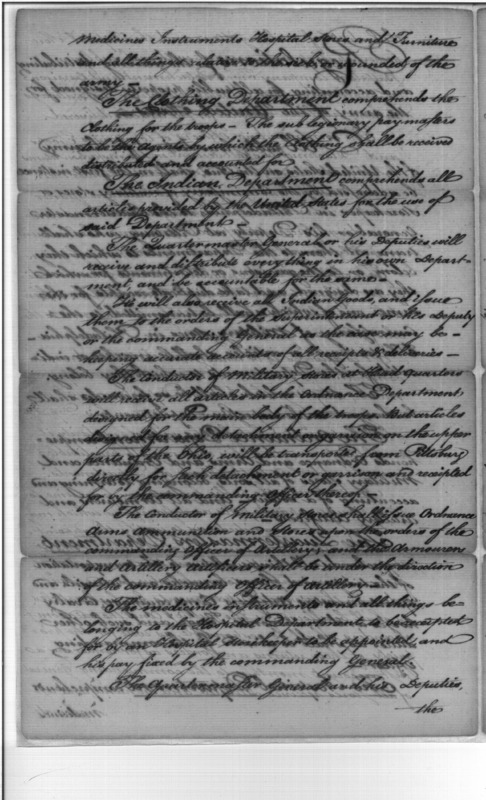 Medicines Instruments Hospital Stores and Furniture
and all things relative to the sick or wounded of the
army —
The Clothing Department comprehends the
Clothing for the troops — The sub legionary paymasters
to be the agents by which the Clothing shall be received
distributed and accounted for
The Indian Department comprehends all
articles provided by the United States for the use of
said Department —
The Quartermaster General or his Deputies will
receive and distribute every thing in his own Depart-
ment, and be accountable for the same —
He will also receive all Indian Goods, and issue
them to the orders of the Superintendant or his Deputy
or the commanding General as the case may be —
keeping accurate accounts of all receipts & deliveries —
The Conductor of Military stores at Head quarters
will receive all articles in the Ordnance Department
designed for the main body of the troops. But articles
designed for any detachment or garrison on the upper
parts of the Ohio, will be transported from Pittsburg
directly for such detachment or garrison and receipted
for by the commanding Officer thereof —
The Conductor of Military stores shall issue Ordnance
Arms Ammunition and Stores upon the orders of the
commanding Officer of Artillery; and the Armourers
and Artillery Artificers shall be under the direction
of the commanding Officer of Artillery —
The medicines instruments and all things be-
longing to the Hospital Department to be receipted
for by an Hospital Storekeeper to be appointed, and
his pay fixed by the commanding General.
The Quartermaster General and his Deputies,
the